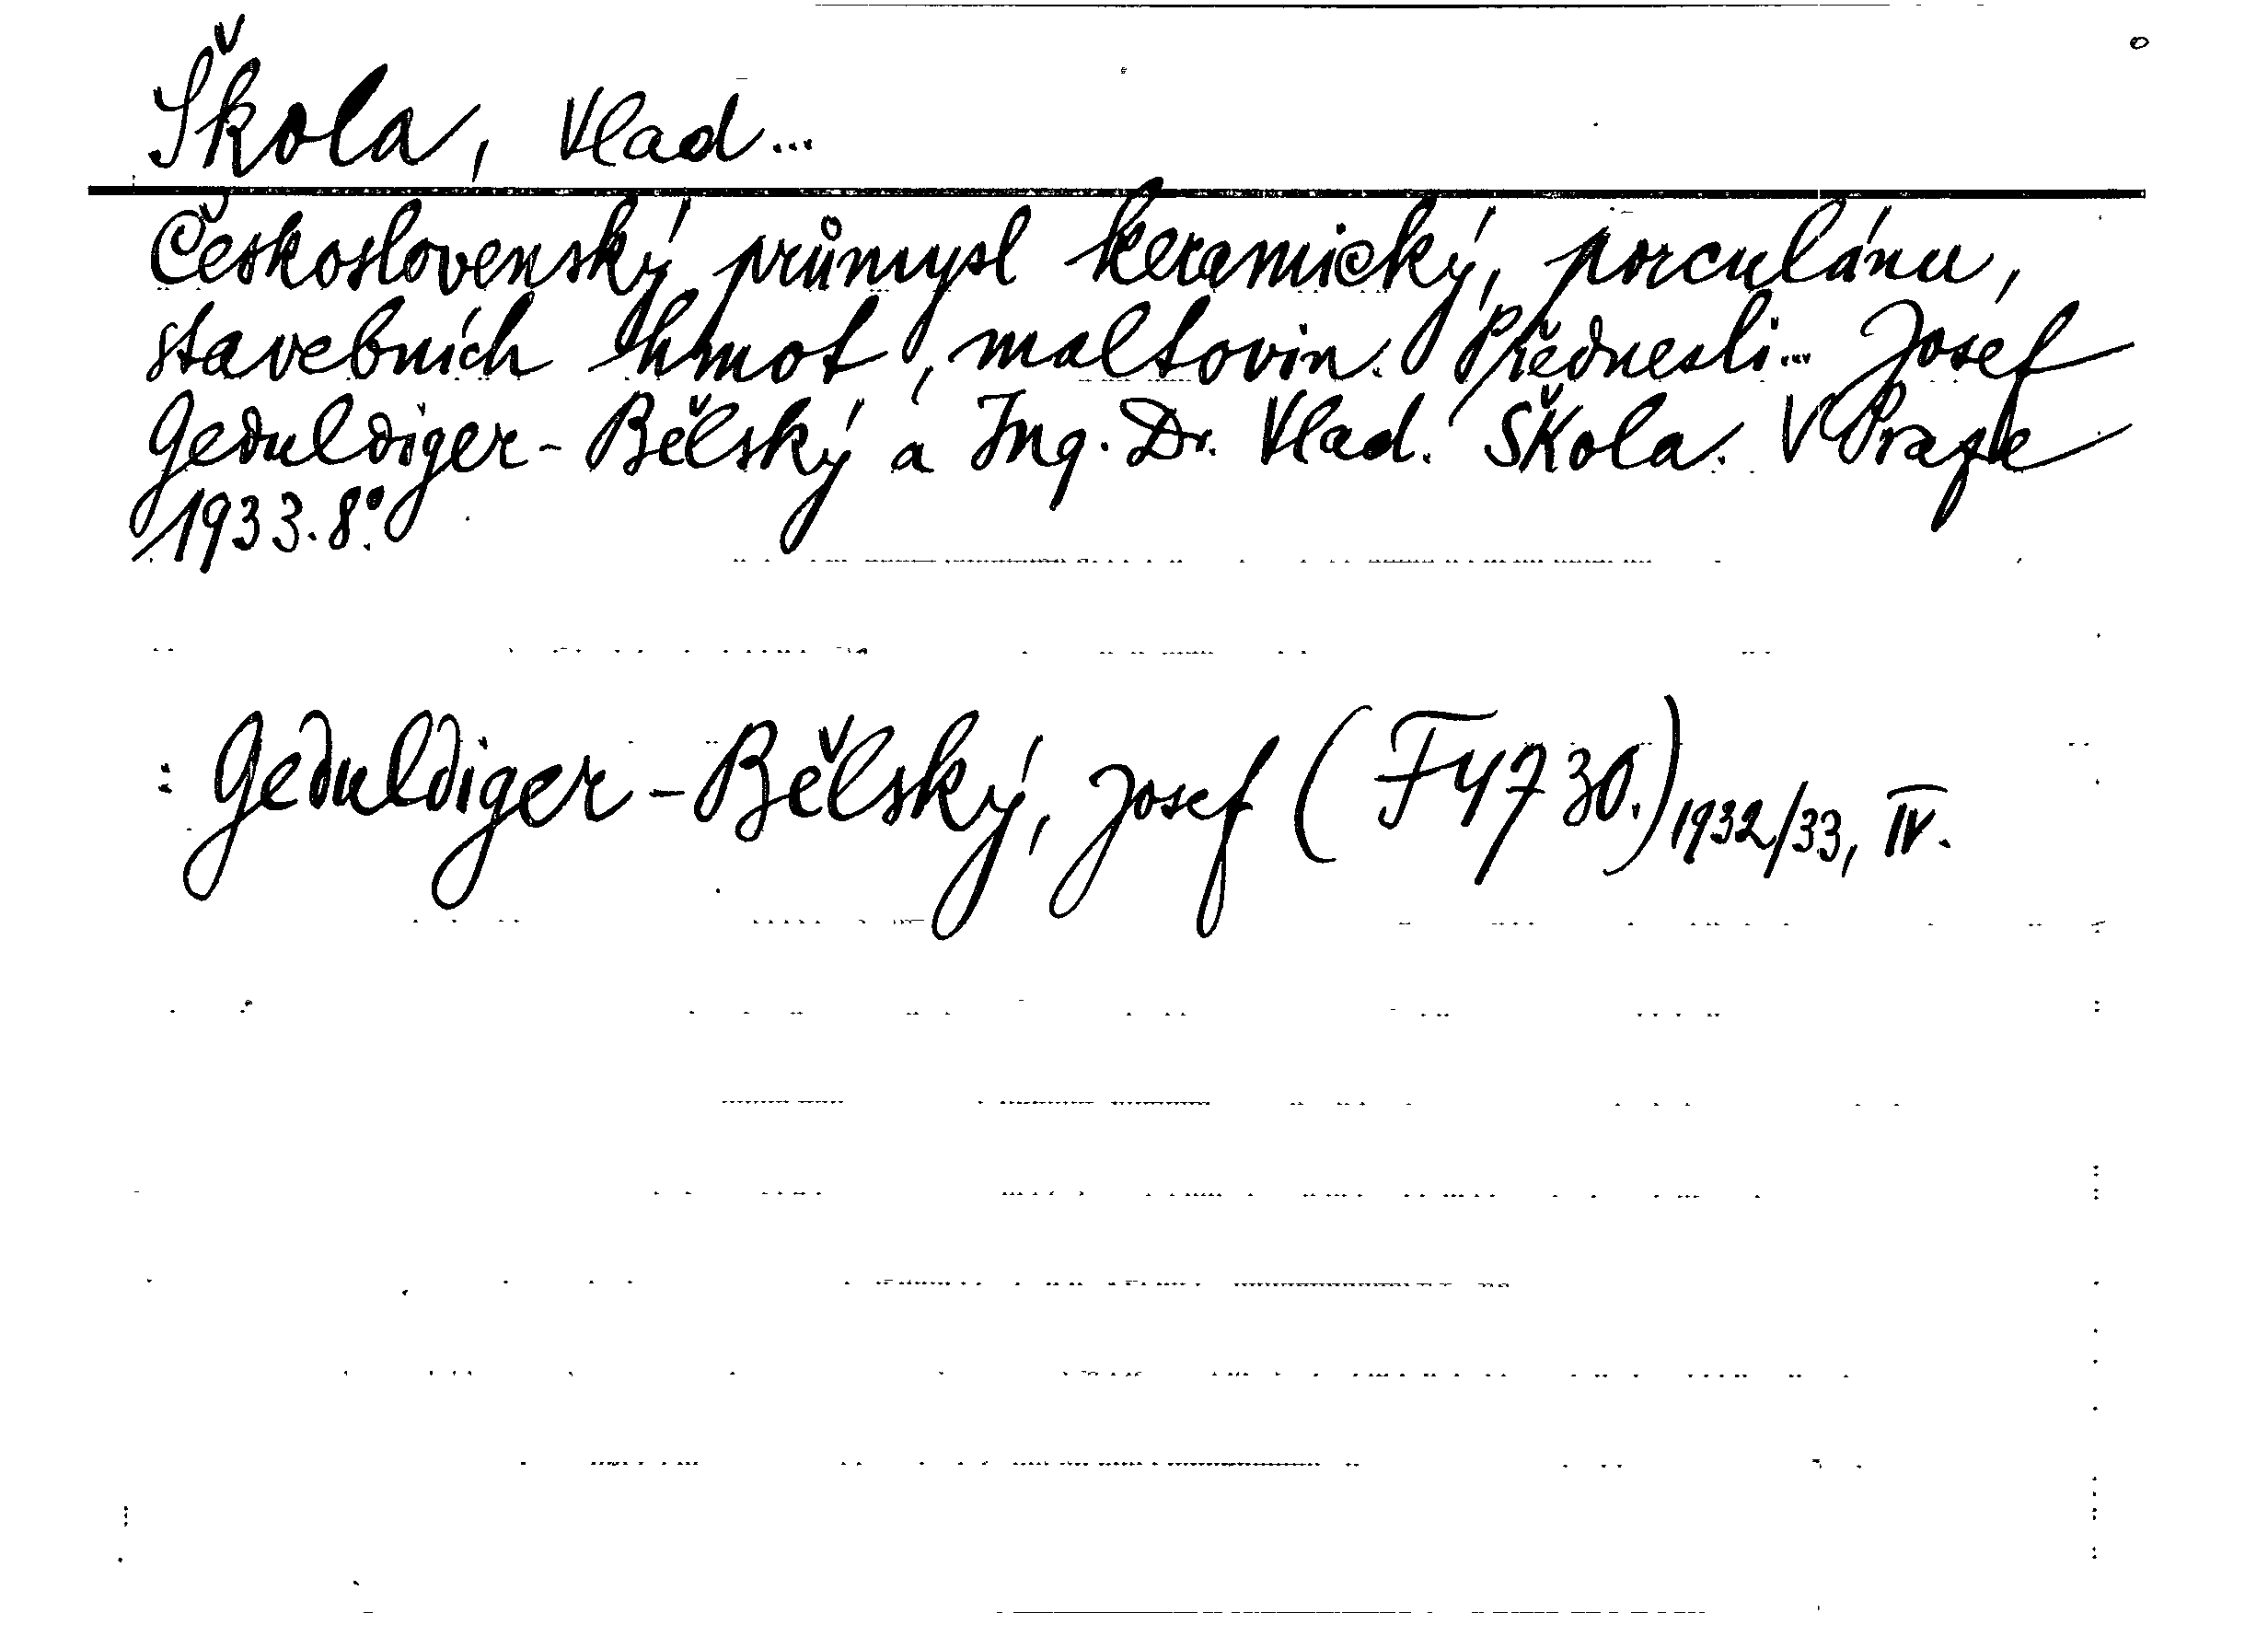 Škola, Vlad...
Československý průmysl keramický, porculánu,
stavebních hmot, maltovin. Přednesli... Josef
Geduldiger-Bělský a Ing. Dr. Vlad. Škola. V Praze
1933. 8°.
: Geduldiger-Bělský, Josef (F4730.) 1932/33, IV.